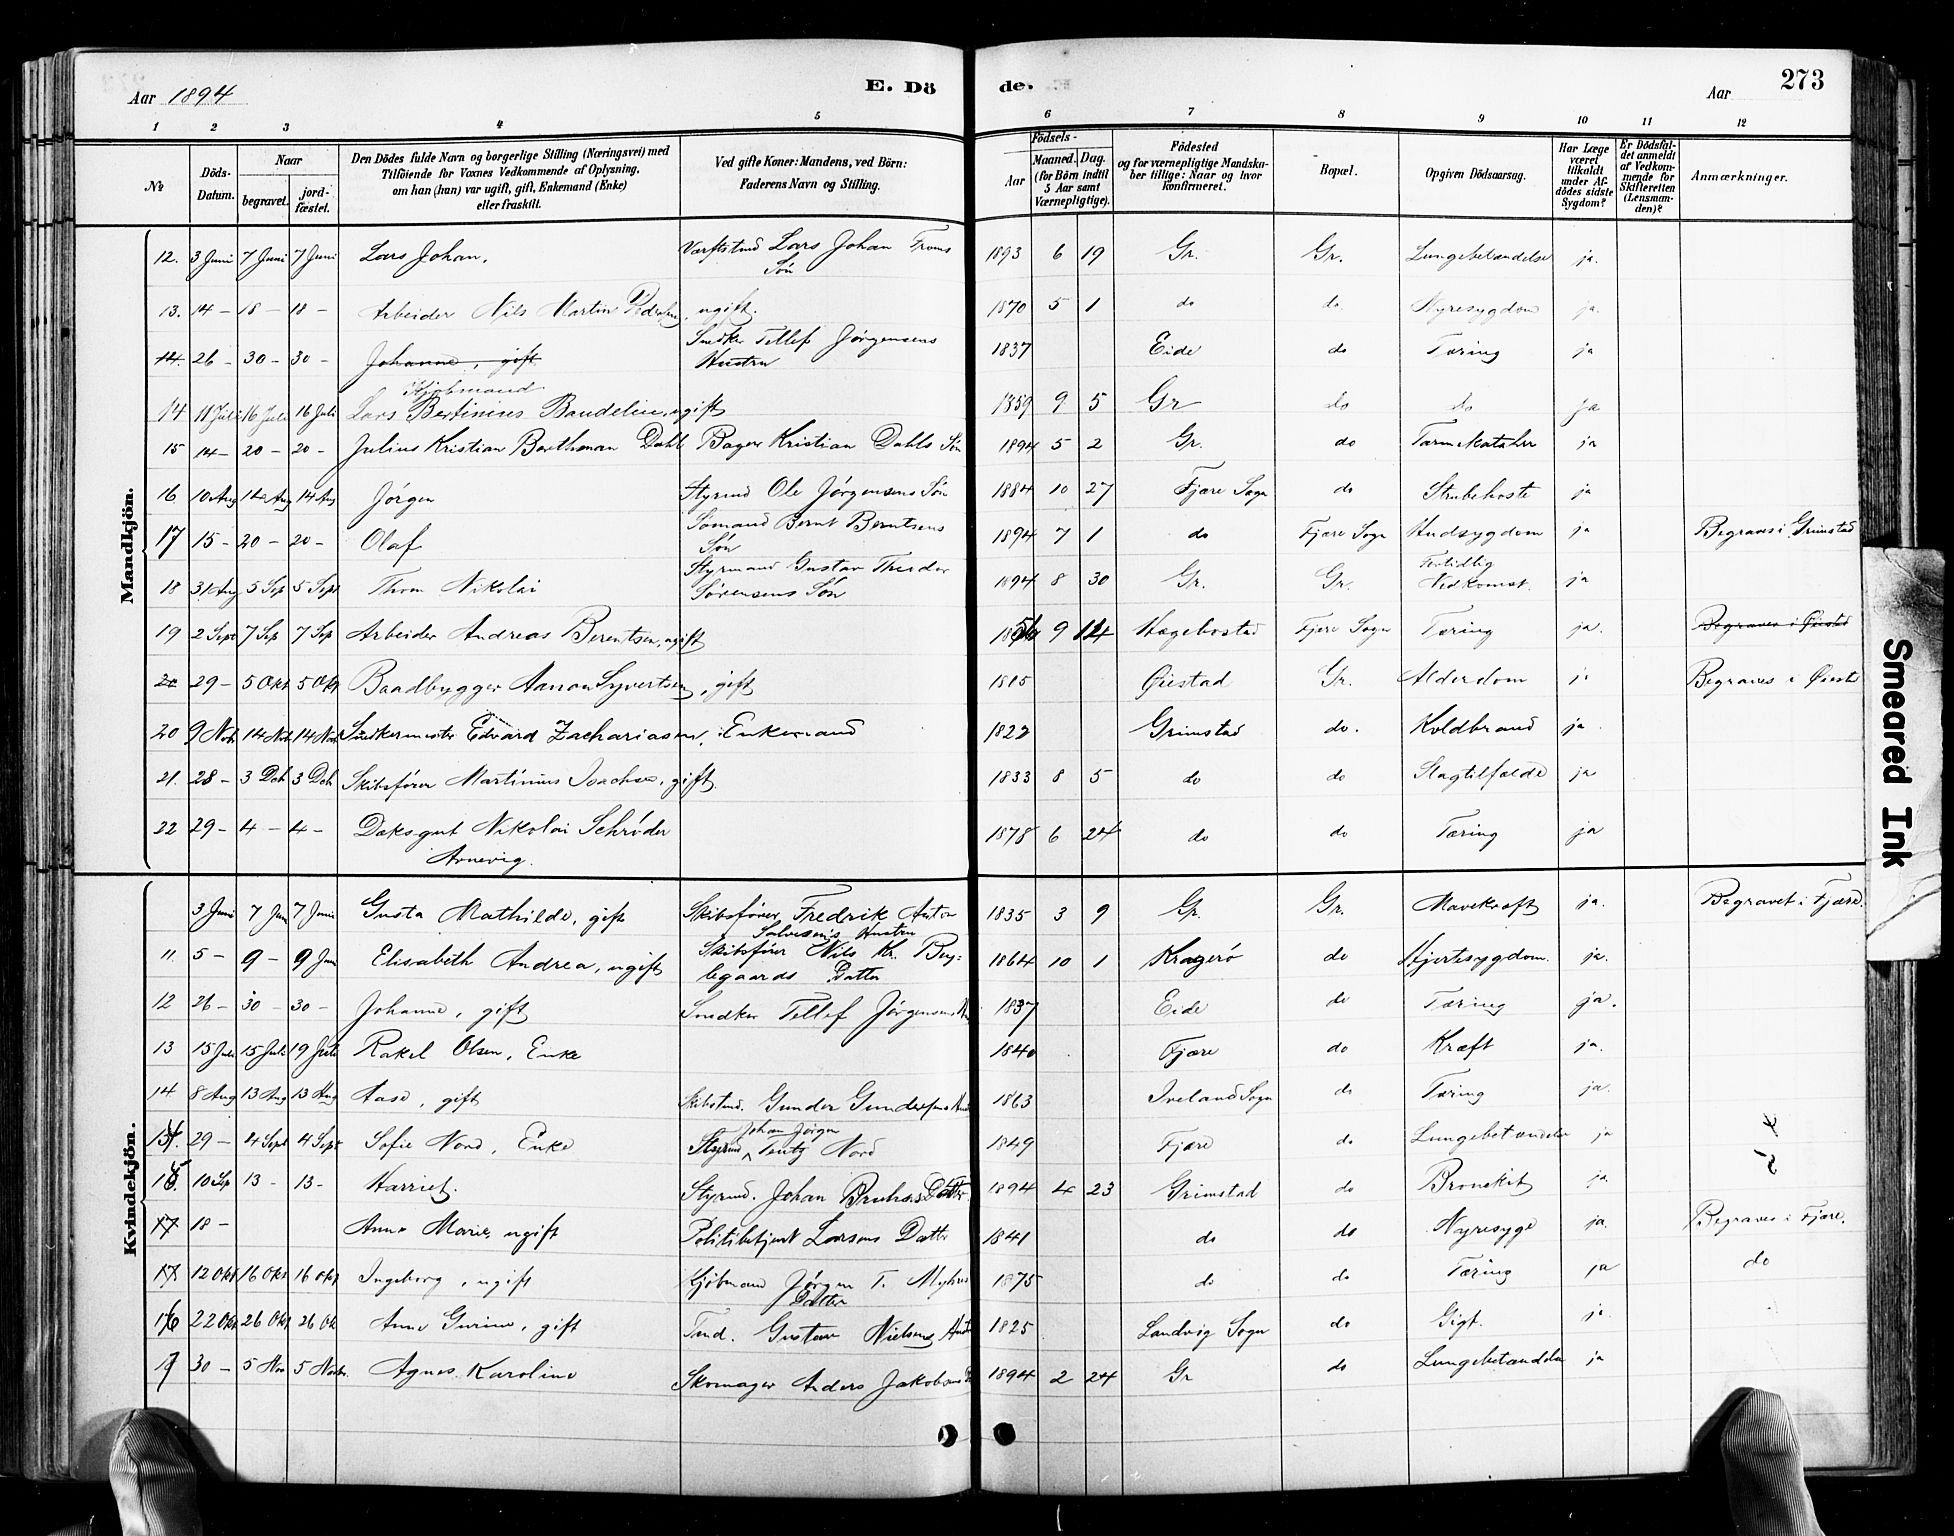 Aar 1894
E. Dö
de.
Aar
273
1 2 3 4 5 6 7 8 9 10 11 12
No
Döds-Datum.
Naar
begravet.
jord-fæstet.
Den Dödes fulde Navn og borgerlige Stilling (Næringsvei) med
Tilföiende for Voxnes Vedkommende af Oplysning,
om han (han) var ugift, gift, Enkemand (Enke)
eller fraskilt.
Ved gifte Koner: Mandens, ved Börn:
Faderens Navn og Stilling.
Födsels-
Aar
Maaned. Dag.
(for Börn indtil
5 Aar samt
Værnepligtige).
Födested
og for værnepligtige Mandska-
ber tillige: Naar og hvor
konfirmeret.
Bopæl.
Opgiven Dödsaarsag.
Har Læge
været
tilkaldt
under Af-
dödes sidste
Sygdom?
Er Dödsfal-
det anmeldt
af Vedkom-
mende for
Skifteretten
(Lensman-
den)?
Anmærkninger.
Mandkjön.
12. 3 Juni 7 Juni 7 Juni Lars Johan. Værftsmd Lars Johan Søn 1893 6 19 Gr. Gr. Lungebetændelse ja.
13. 14 - 18 - 18 - Arbeider Nils Martin Pedersen, ugift. 1870 5 1 do do. Nyresygdom ja.
14. 26 - 30 - 30 - Johanne, gift Snedker Tellef Jørgensens Hustru 1837 Eide do Tæring ja
14 11 Juli 16 Juli 16 Juli Kjøbmand Lars Bertinius Baudelin, ugift 1859 9 5 Gr do do ja
15 14 - 20 - 20 - Julius Kristian Barthman Dahl Bager Kristian Dahls Søn 1894 5 2 Gr. do Tarmekatahr ja
16 10 Aug 14 Aug 14 Aug Jørgen Styrmd Ole Jørgensens Søn 1884 10 27 Fjære Sogn do Strubehoste ja
17 15 - 20 - 20 - Olaf Sømand Bernt Berntsens Søn 1894 7 1 do Fjære Sogn Hudsygdom ja Begraves i Grimstad
18 31 Aug 5 Sep 5 Sept Thom Nikolai Styrmand Gustav Theodor Sørensens Søn 1894 8 30 Gr. Gr. Fortidlig Nedkomst. ja
19 2 Sept 7 Sep 7 Sep Arbeider Andreas Berentsen, ugift 1856 9 14 Hægebostad Fjære Sogn Tæring ja. Begraves i Øiestad
20 29 - 5 Okt 5 Okt Baadbygger Aanon Syvertsen, gift 1815 Øiestad Gr. Alderdom ja Begraves i Øiestad
20 9 Nobr 14 Nobr 14 Nobr Snedkermester Edvard Zachariasen, Enkemand 1822 Grimstad do. Koldbrand ja.
21. 28 - 3 Deb 3 Deb Skibsfører Martinius Isachsen, gift 1833 8 5 do do Slagtilfælde ja
22 29 - 4 - 4 - Dæksgut Nikolai Schrøder Arnevig. 1878 6 24 do do Tæring ja
Kvindekjön.
3 Juni 7 Juni 7 Juni Gusta Mathilde, gift Skibsfører Fredrik Anton Salvesens Hustru 1835 3 9 Gr. Gr. Mavekræft ja. Begravet i Fjære.
11 5 - 9 - 9 Juni Elisabeth Andrea, ugift Skibsfører Nils Kr. Datter 1864 10 1 Kragerø do Hjertesygdom. ja.
12 26 - 30 - 30 - Johanne, gift Snedker Tellef Jørgensens 1837 Eide do Tæring ja.
13 15 Juli 15 Juli 19 Juli Rakel Olsen, Enke 1840 Fjære do Kræft ja.
14 8 Aug 13 Aug 13 Aug Aase, gift Skibstmd. Gunder Gundersens 1863 Iveland Sogn do Tæring ja.
29 - 4 Sept 4 Sept Sofie Nord, Enke Styrmd Johan Jørgen Nord 1849 Fjære do Lungebetændelse ja 4
10 Sep 13 - 13 - Harriet. Styrmd. Johan Datter 1894 4 23 Grimstad do Bronckit ja 5
17 18 - Anne Marie, ugift Politibetjent Larsens Datter 1841 do do Nyresyge ja. Begraves i Fjære.
12 Okt 16 Okt 16 Okt Ingeborg, ugift Kjøbmand Jørgen T. Datter 1875 do do Tæring ja do
16 22 Okt 26 Okt 26 Ok Anne Gurine, gift Tmd. Gustav Nielsens 1825 Landvig Sogn do Gigt. ja.
17 30 - 5 Nov 5 Novbr. Agnes Karoline Skomager Anders Jakobsens 1894 2 24 Gr do Lungebetændelse ja
Smeared Ink